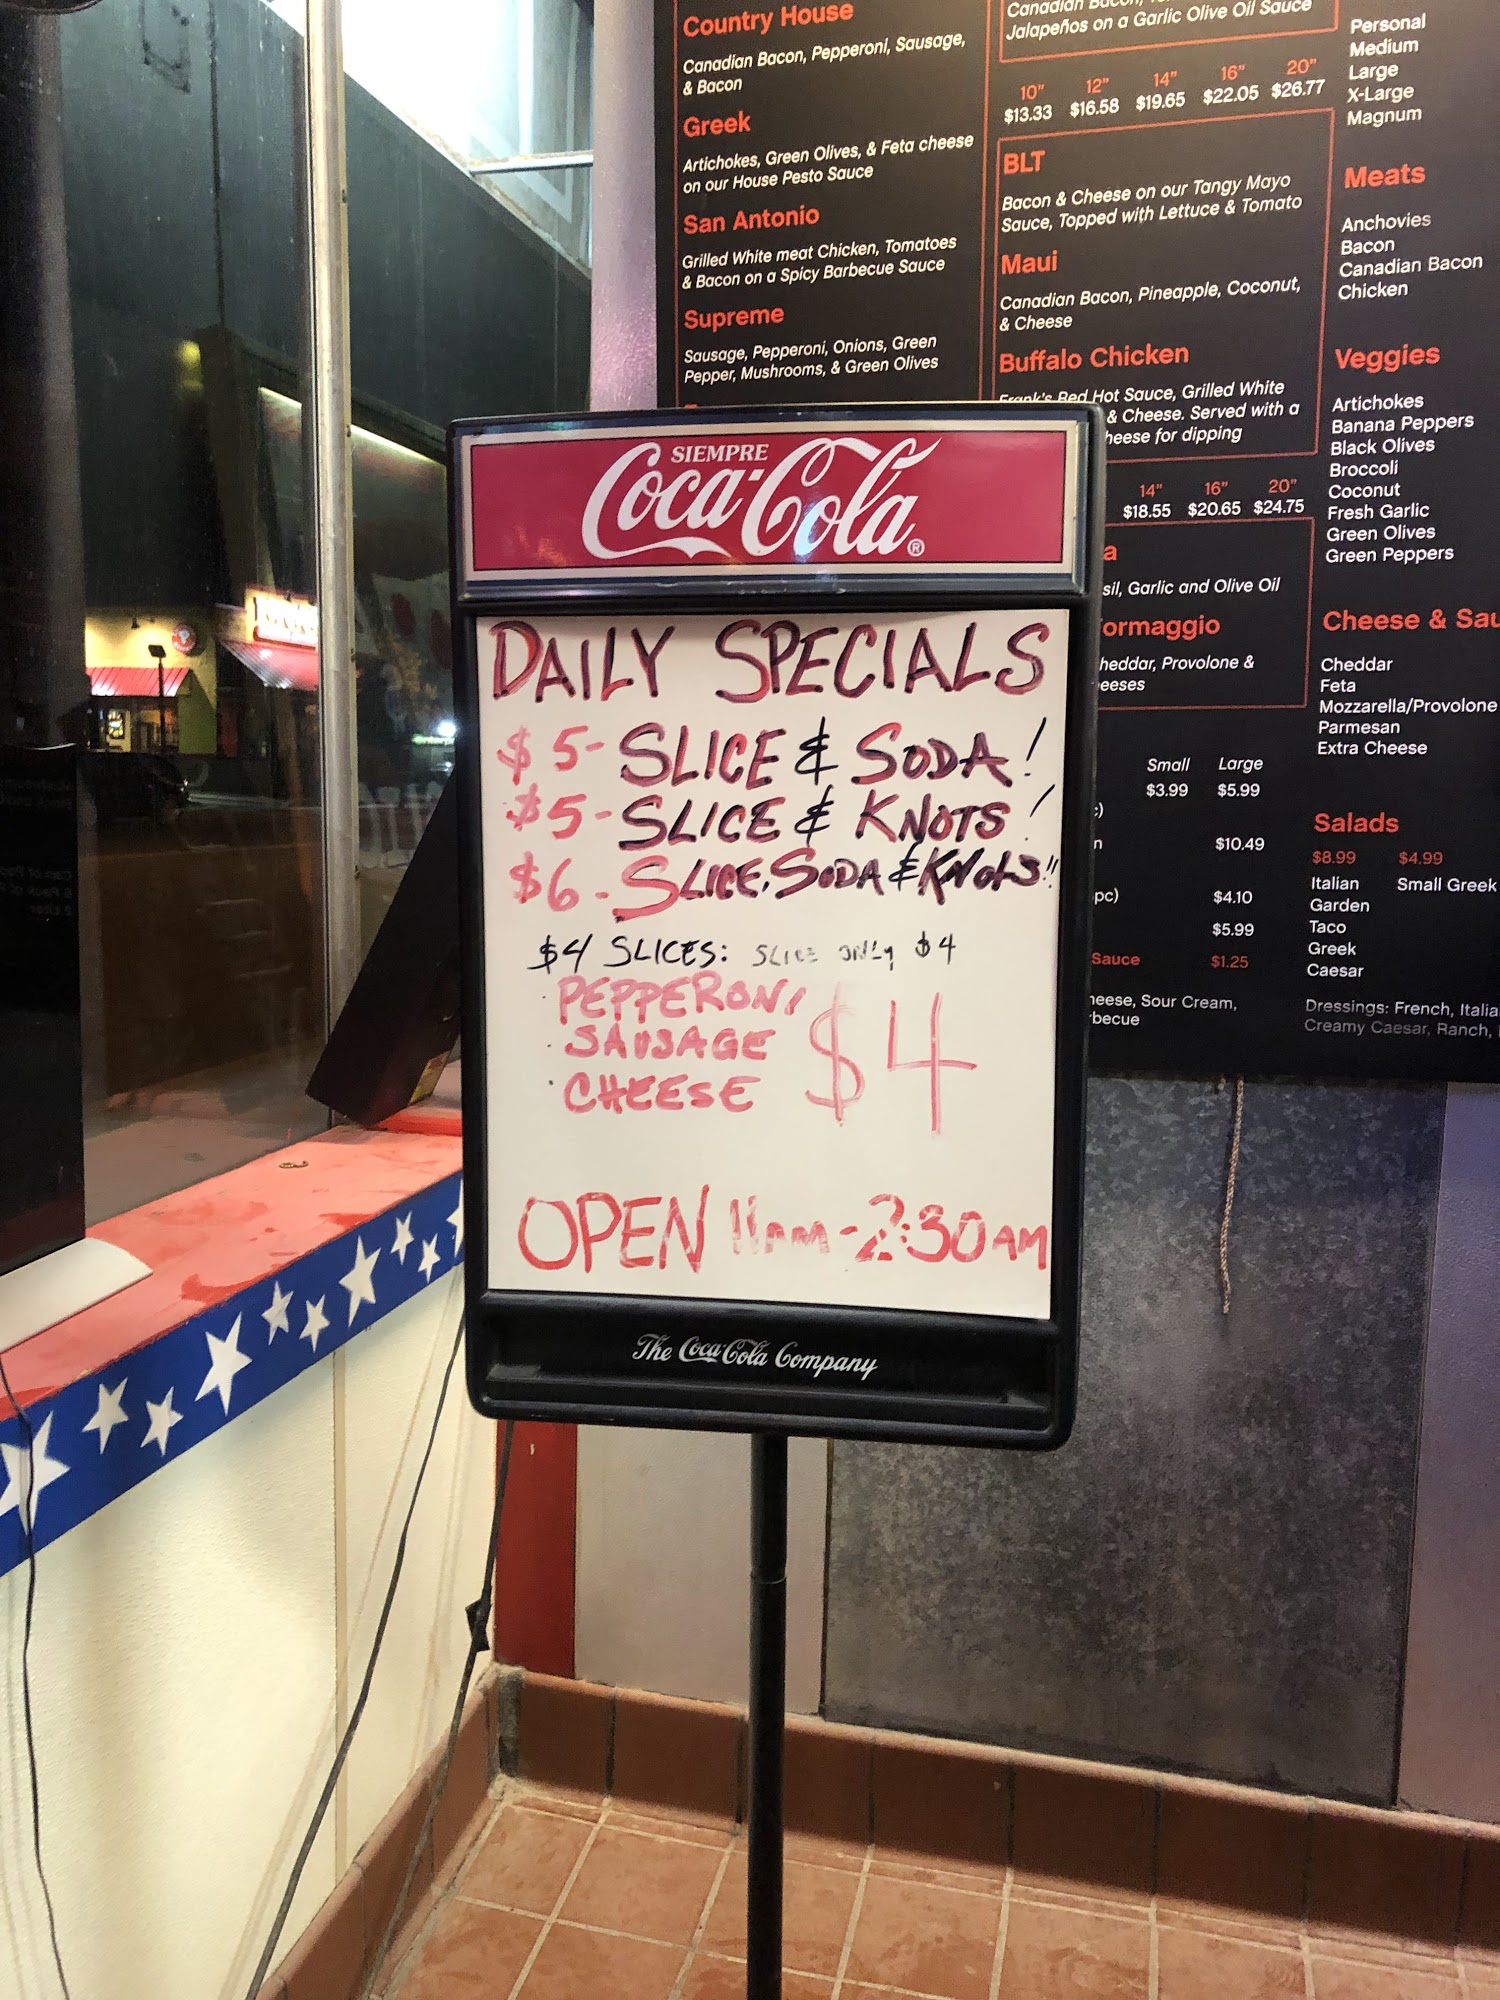 SIEMPRE
Coca-Cola®
DAILY SPECIALS
$5-SLICE & SODA!
$5-SLICE & KNOTS!
$6-SLICE, SODA & KNOTS!!
$4 SLICES: SLICE ONLY $4
· PEPPERONI
· SAUSAGE
· CHEESE
$4
OPEN 11AM-2:30AM
The Coca-Cola Company
Country House
Canadian Bacon, Pepperoni, Sausage,
& Bacon
Greek
Artichokes, Green Olives, & Feta cheese
on our House Pesto Sauce
San Antonio
Grilled White meat Chicken, Tomatoes
& Bacon on a Spicy Barbecue Sauce
Supreme
Sausage, Pepperoni, Onions, Green
Pepper, Mushrooms, & Green Olives
Canadian Bacon,
Jalapeños on a Garlic Olive Oil Sauce
10" 12" 14" 16" 20"
$13.33 $16.58 $19.65 $22.05 $26.77
BLT
Bacon & Cheese on our Tangy Mayo
Sauce, Topped with Lettuce & Tomato
Maui
Canadian Bacon, Pineapple, Coconut,
& Cheese
Buffalo Chicken
Frank's Red Hot Sauce, Grilled White
& Cheese. Served with a
heese for dipping
14" 16" 20"
$18.55 $20.65 $24.75
a
sil, Garlic and Olive Oil
ormaggio
heddar, Provolone &
eeses
Small Large
$3.99 $5.99
:)
n $10.49
pc) $4.10
$5.99
Sauce $1.25
heese, Sour Cream,
becue
Personal
Medium
Large
X-Large
Magnum
Meats
Anchovies
Bacon
Canadian Bacon
Chicken
Veggies
Artichokes
Banana Peppers
Black Olives
Broccoli
Coconut
Fresh Garlic
Green Olives
Green Peppers
Cheese & Sau
Cheddar
Feta
Mozzarella/Provolone
Parmesan
Extra Cheese
Salads
$8.99 $4.99
Italian Small Greek
Garden
Taco
Greek
Caesar
Dressings: French, Italia
Creamy Caesar, Ranch,